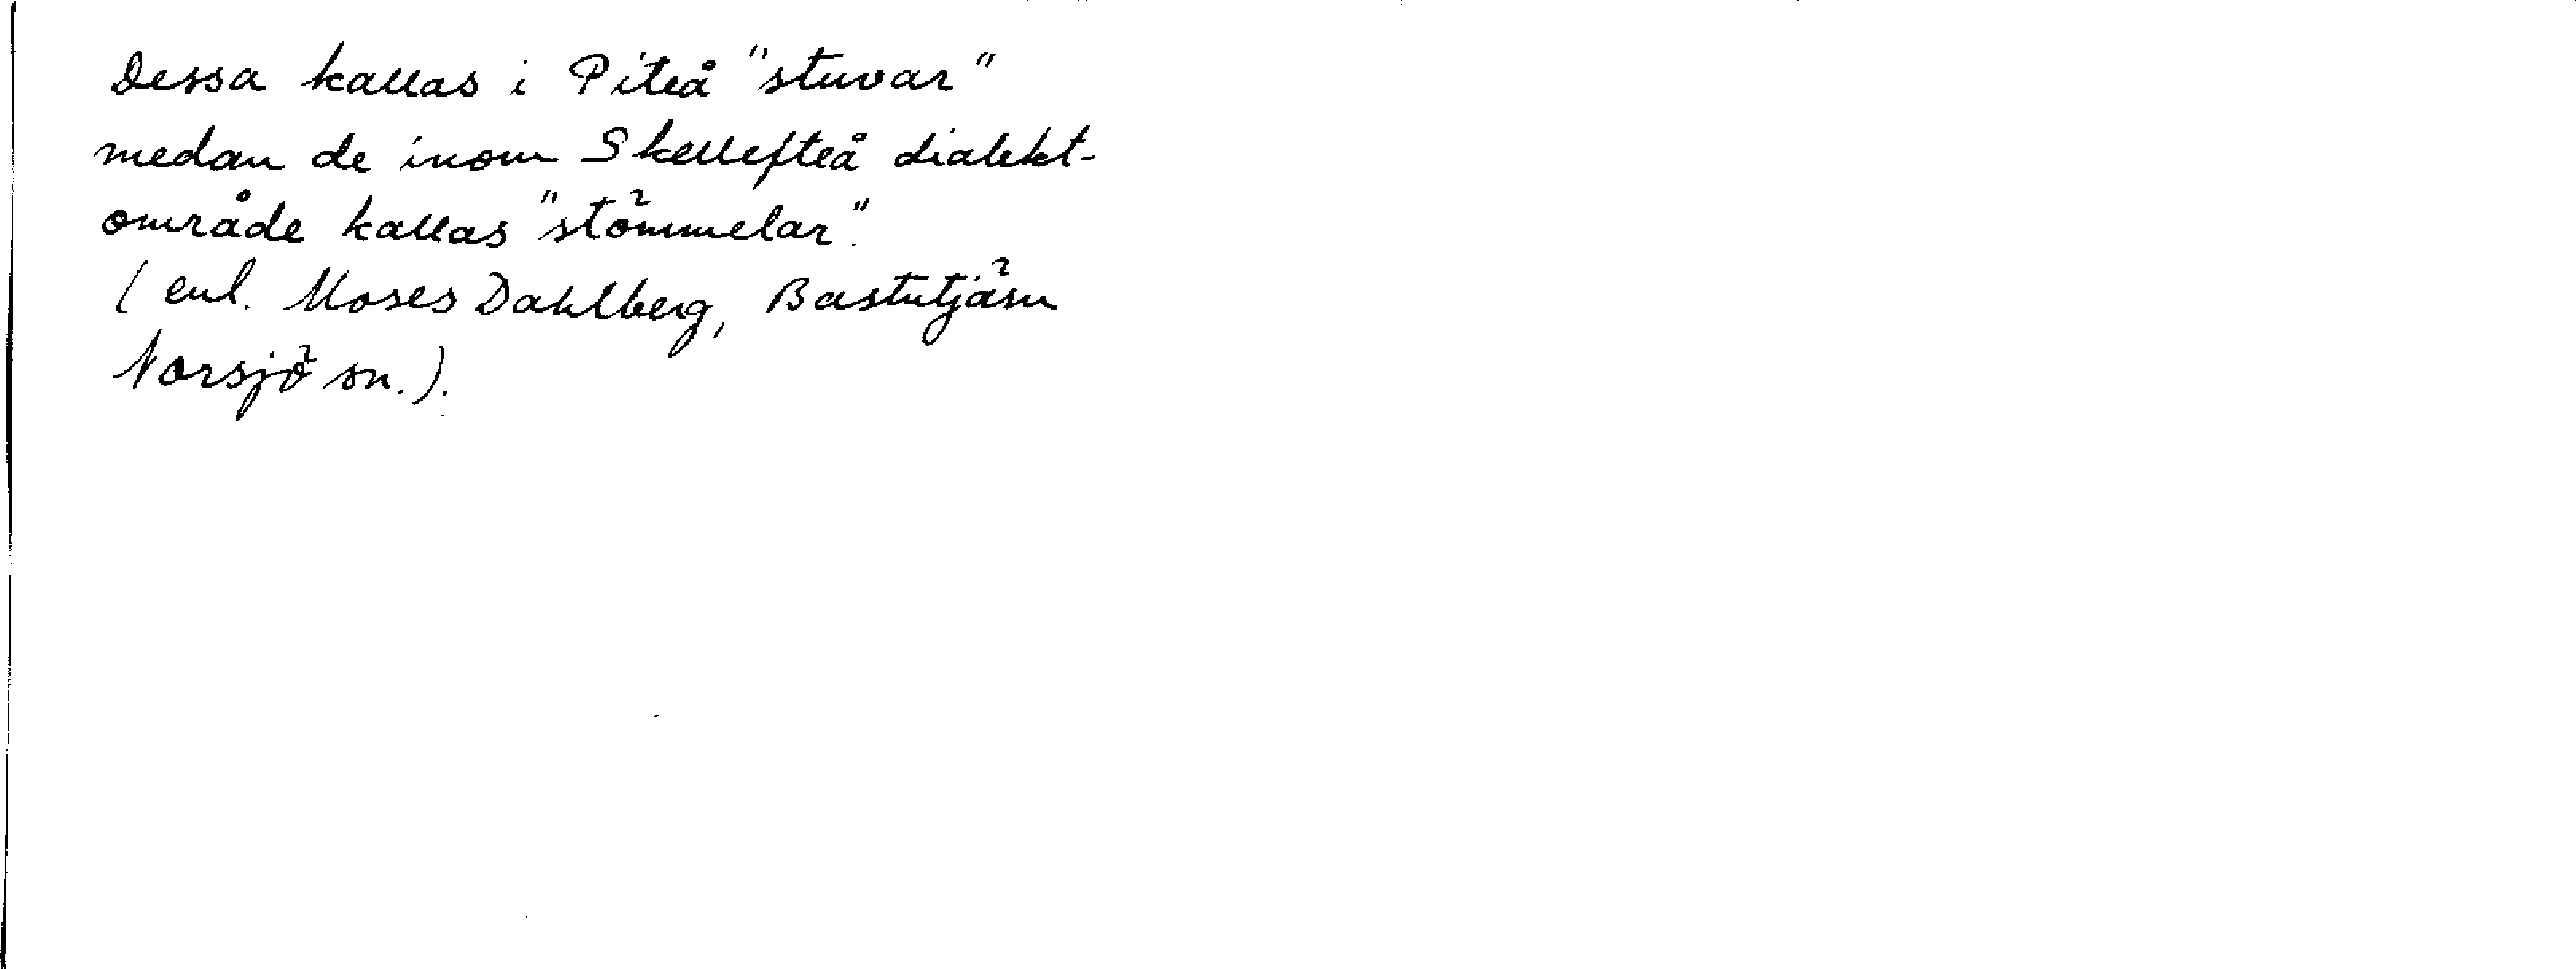 Dessa kallas i Piteå "stuvar"
medan de inom Skellefteå dialekt-
område kallas "stömmelar".
(enl. Moses Dahlberg, Bastutjärn
Norsjö sn.).